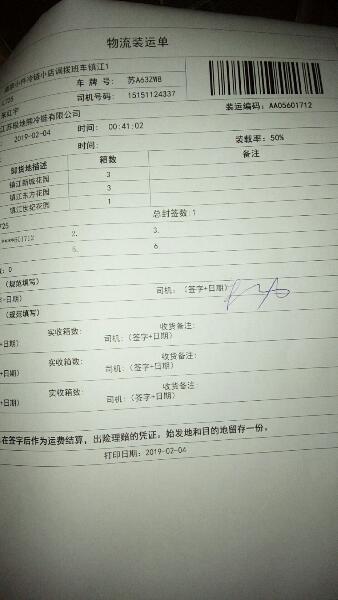 物流装运单
小件冷链小店调拨班车镇江1
车 牌 号: 苏A63ZW8
司机号码: 15151124337
江苏极地熊冷链有限公司
装运编码: AA05601712
2019-02-04
时间: 00:41:02
时间:
装载率: 50%
卸货地描述 箱数 备注
镇江新城花园 3
镇江东方花园 3
镇江世纪花园 1
总封签数:1
2. 3.
5. 6
: 0
(规范填写)
+日期) 司机: (签字+日期)
(规范填写)
实收箱数: 收货备注:
+日期) 司机: (签字+日期)
实收箱数: 收货备注:
+日期) 司机: (签字+日期)
实收箱数: 收货备注:
+日期) 司机: (签字+日期)
在签字后作为运费结算, 出险理赔的凭证。始发地和目的地留存一份。
打印日期: 2019-02-04